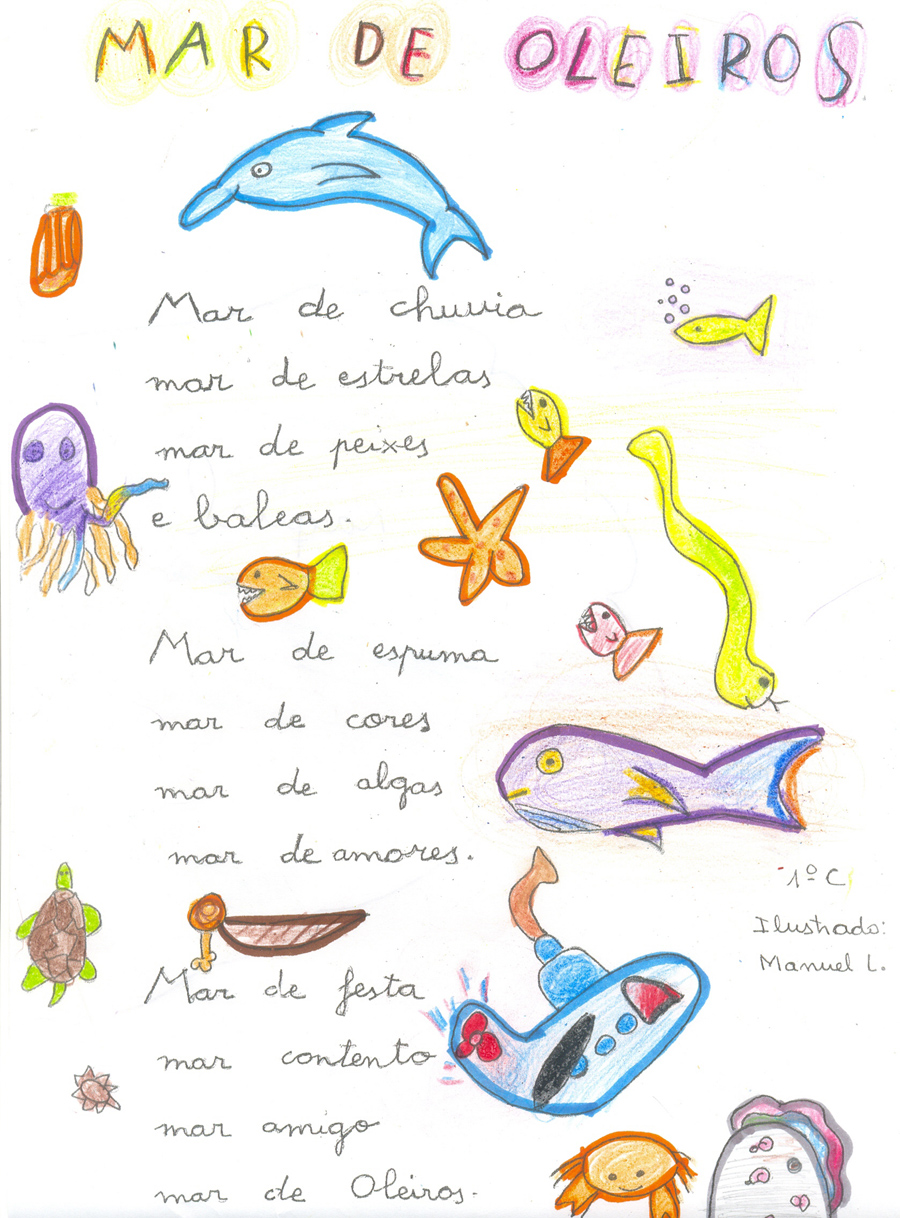 MAR DE OLEIROS
Mar de chuvia
mar de estrelas
mar de peixes
e baleas.
Mar de espuma
mar de cores
mar de algas
mar de amores.
1º C
Ilustrado:
Manuel L.
Mar de festa
mar contento
mar amigo
mar de Oleiros.